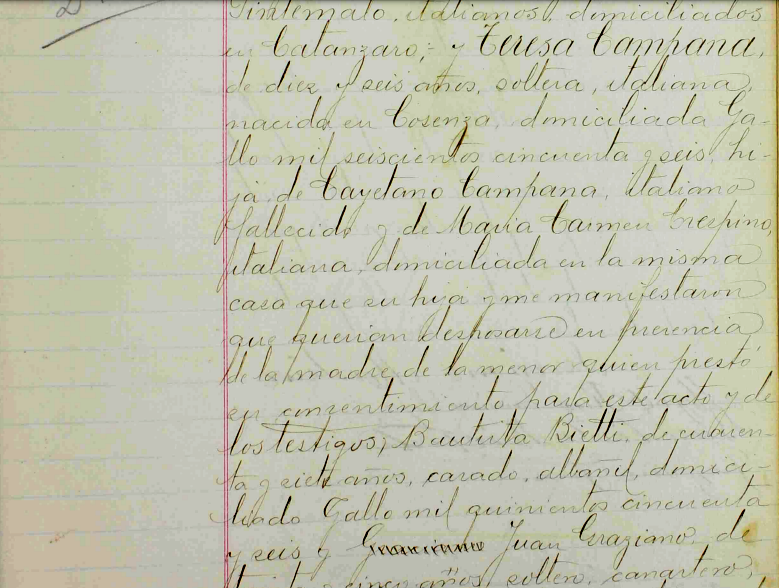 italianos, domiciliados
en Catanzaro,- y Teresa Campana,
de diez y seis años, soltera, italiana,
nacida en Cosenza, domiciliada Ga-
llo mil seiscientos cincuenta y seis, hi-
ja de Cayetano Campana, italiano
fallecido y de Maria Carmen Crespino,
italiana, domiciliada en la misma
casa que su hija y me manifestaron
que querian desposarse en presencia
de la madre de la menor quien prestó
su consentimiento para este acto y de
los testigos; Bautista Bietti, de cuaren-
ta y siete años, casado, albañil, domici-
liado Gallo mil quinientos cincuenta
y seis y Juan Graziano, de
treinta y cinco años, soltero, canastero,